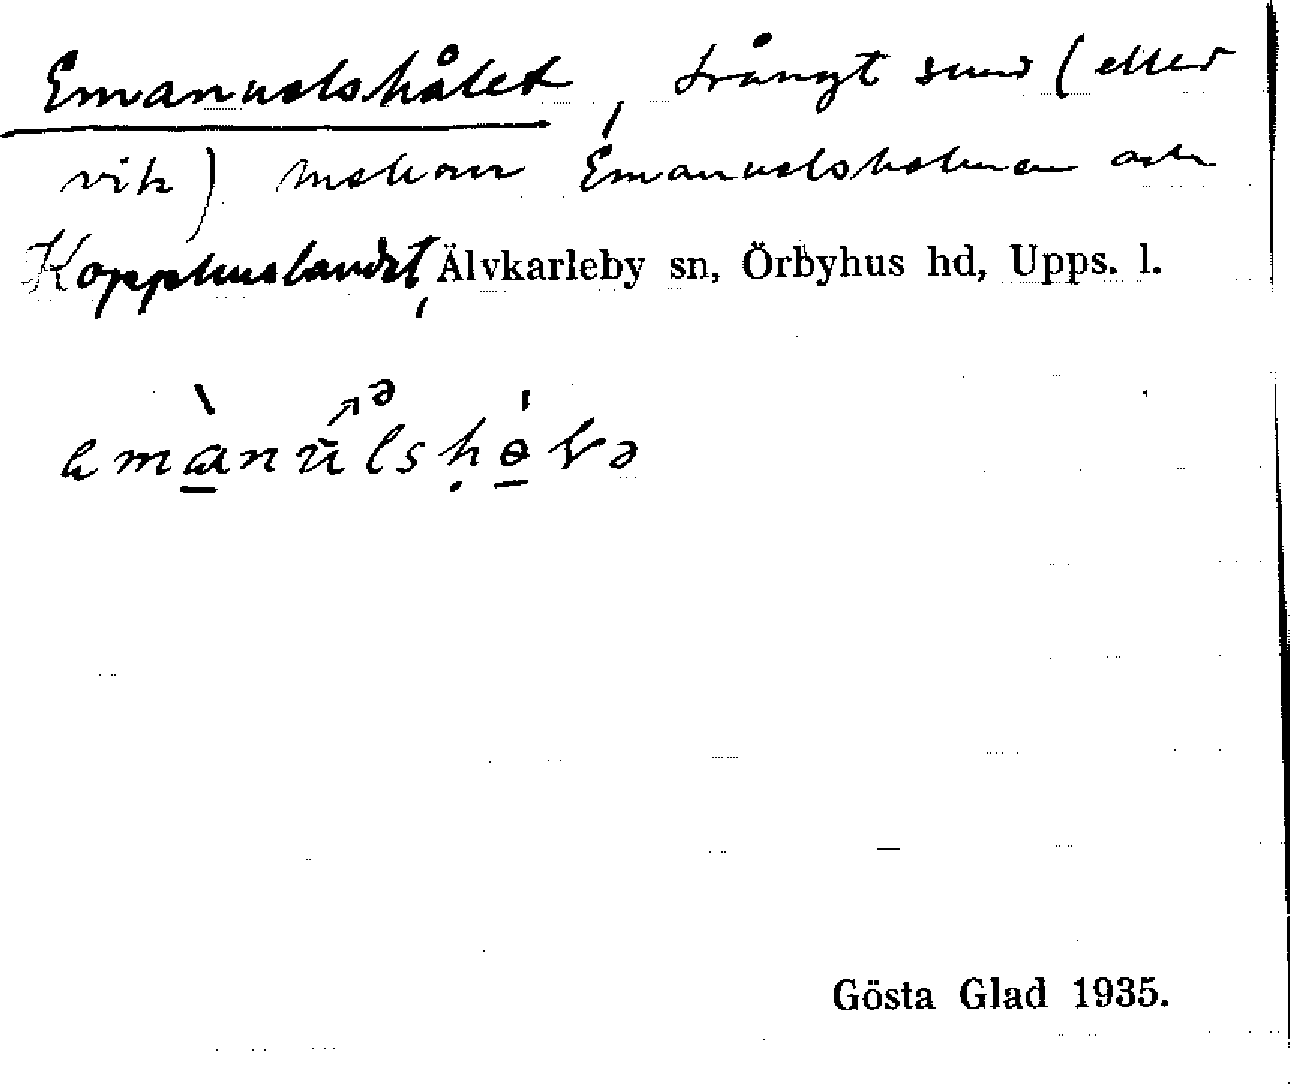 Emanuelshålet, trångt sund (eller
vik) mellan Emanuelsholmen och
Kopphuslandet, Älvkarleby sn, Örbyhus hd, Upps. l.
Gösta Glad 1935.